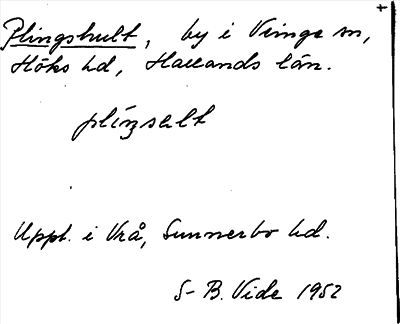 Plingshult, by i Vinge sn, +
Höks hd, Hallands län.
plíŋsəlt
Uppt. i Vrå, Sunnerbo hd.
S-B. Vide 1952